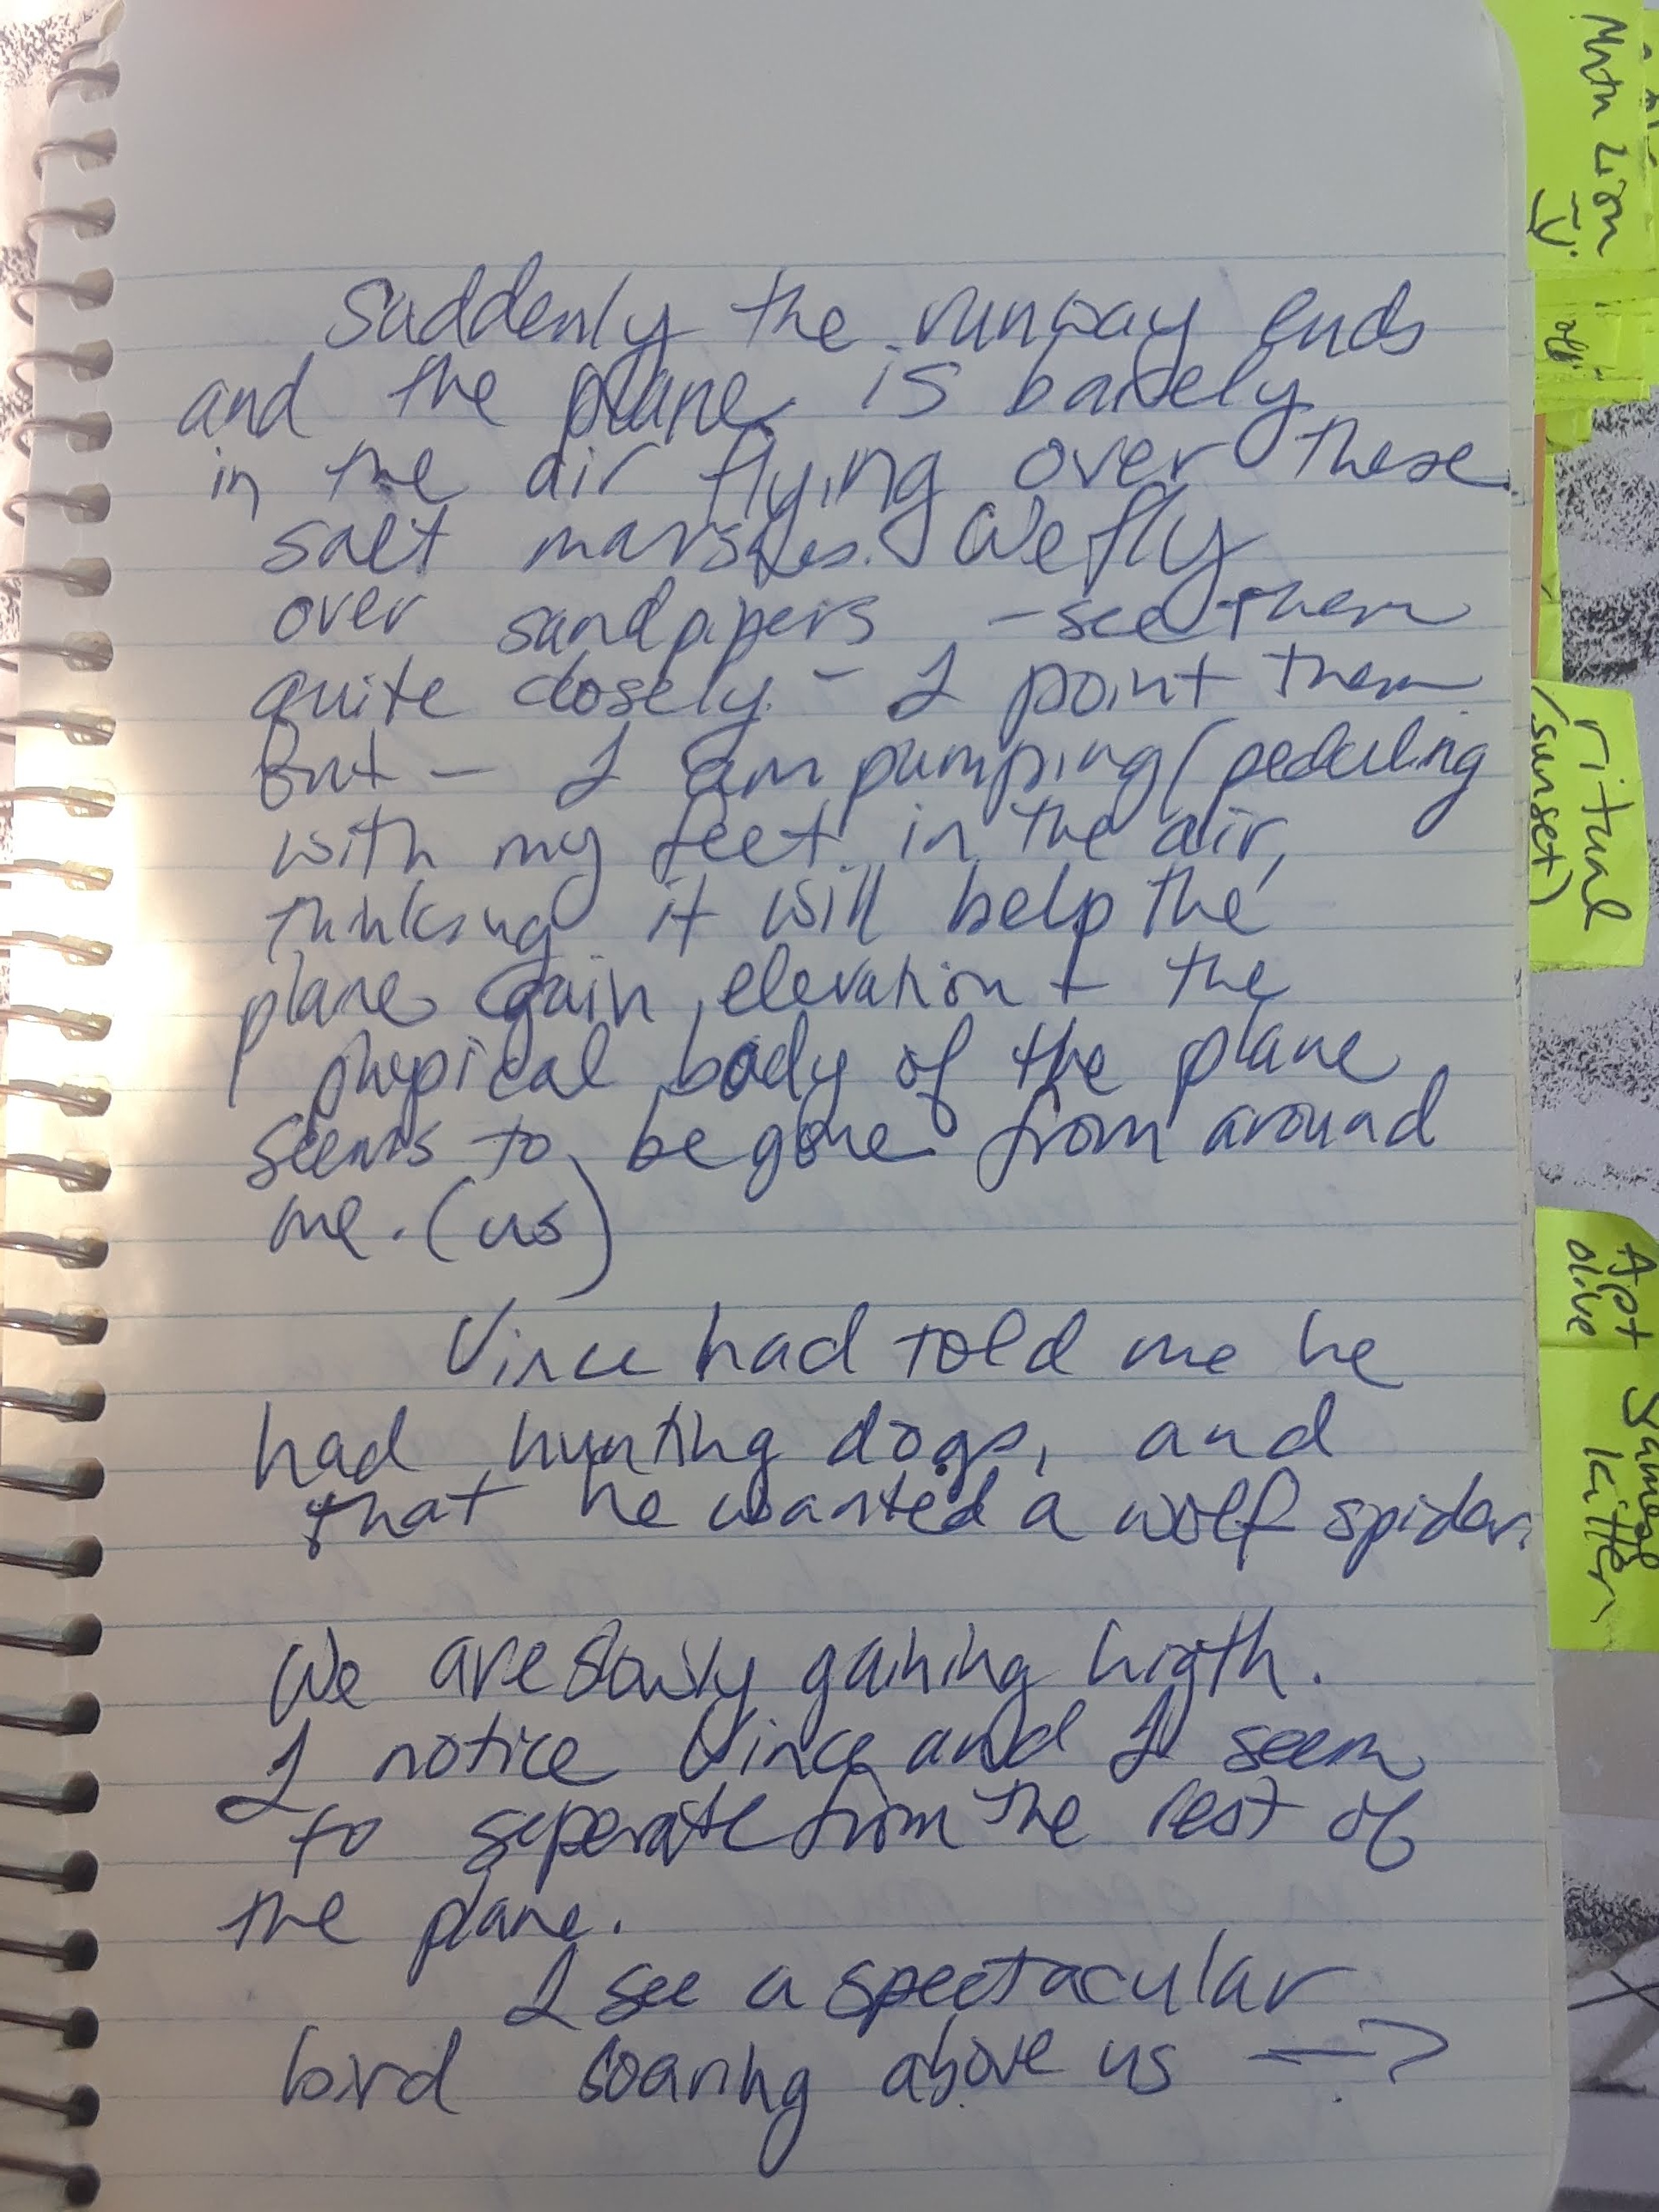 Suddenly the runway ends
and the plane is barely
in the air flying over these
salt marshes. We fly
over sandpipers - see them
quite closely - I point them
out - I am pumping (pedalling
with my feet in the air,
thinking it will help the
plane gain elevation + the
physical body of the plane
seems to be gone from around
me. (us)
Vince had told me he
had hunting dogs, and
that he wanted a wolf spider.
We are slowly gaining higth.
I notice Vince and I seem
to seperate from the rest of
the plane.
I see a spectacular
bird soaring above us →
Mntn Lion
ritual
(sunset)
Apt
olive
Siamese
kitten